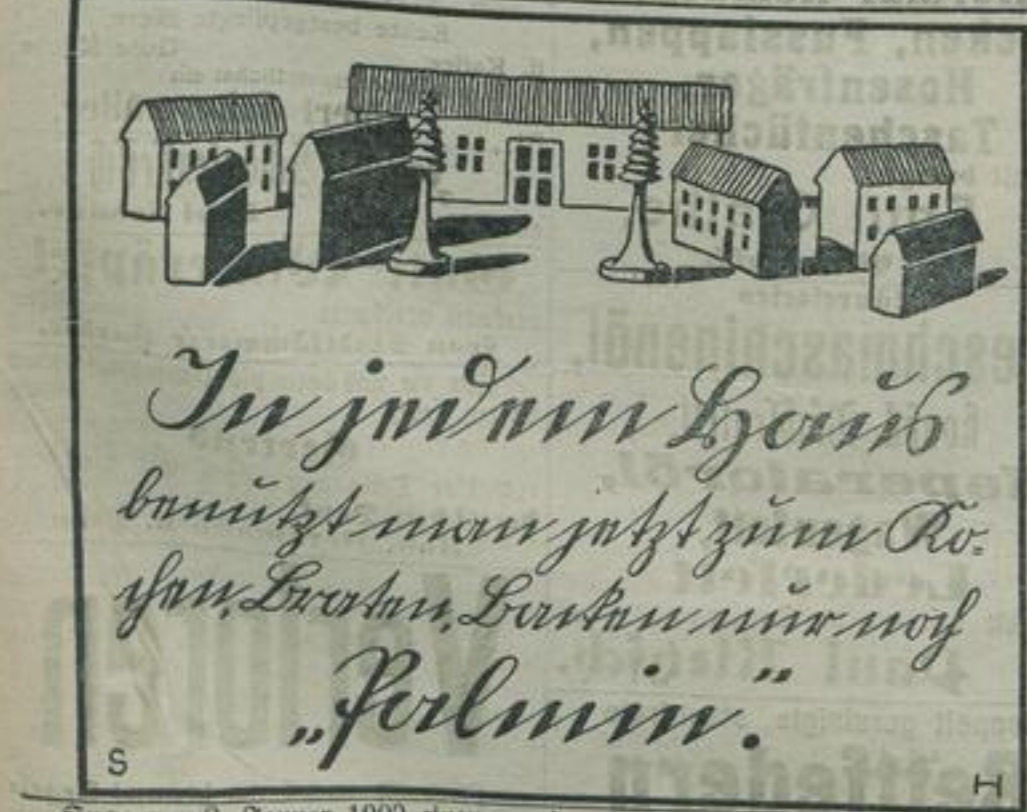 In jedem Haus
benützt man jetzt zum Ko=
chen, Braten, Backen nur noch
„Palmin“.
S H